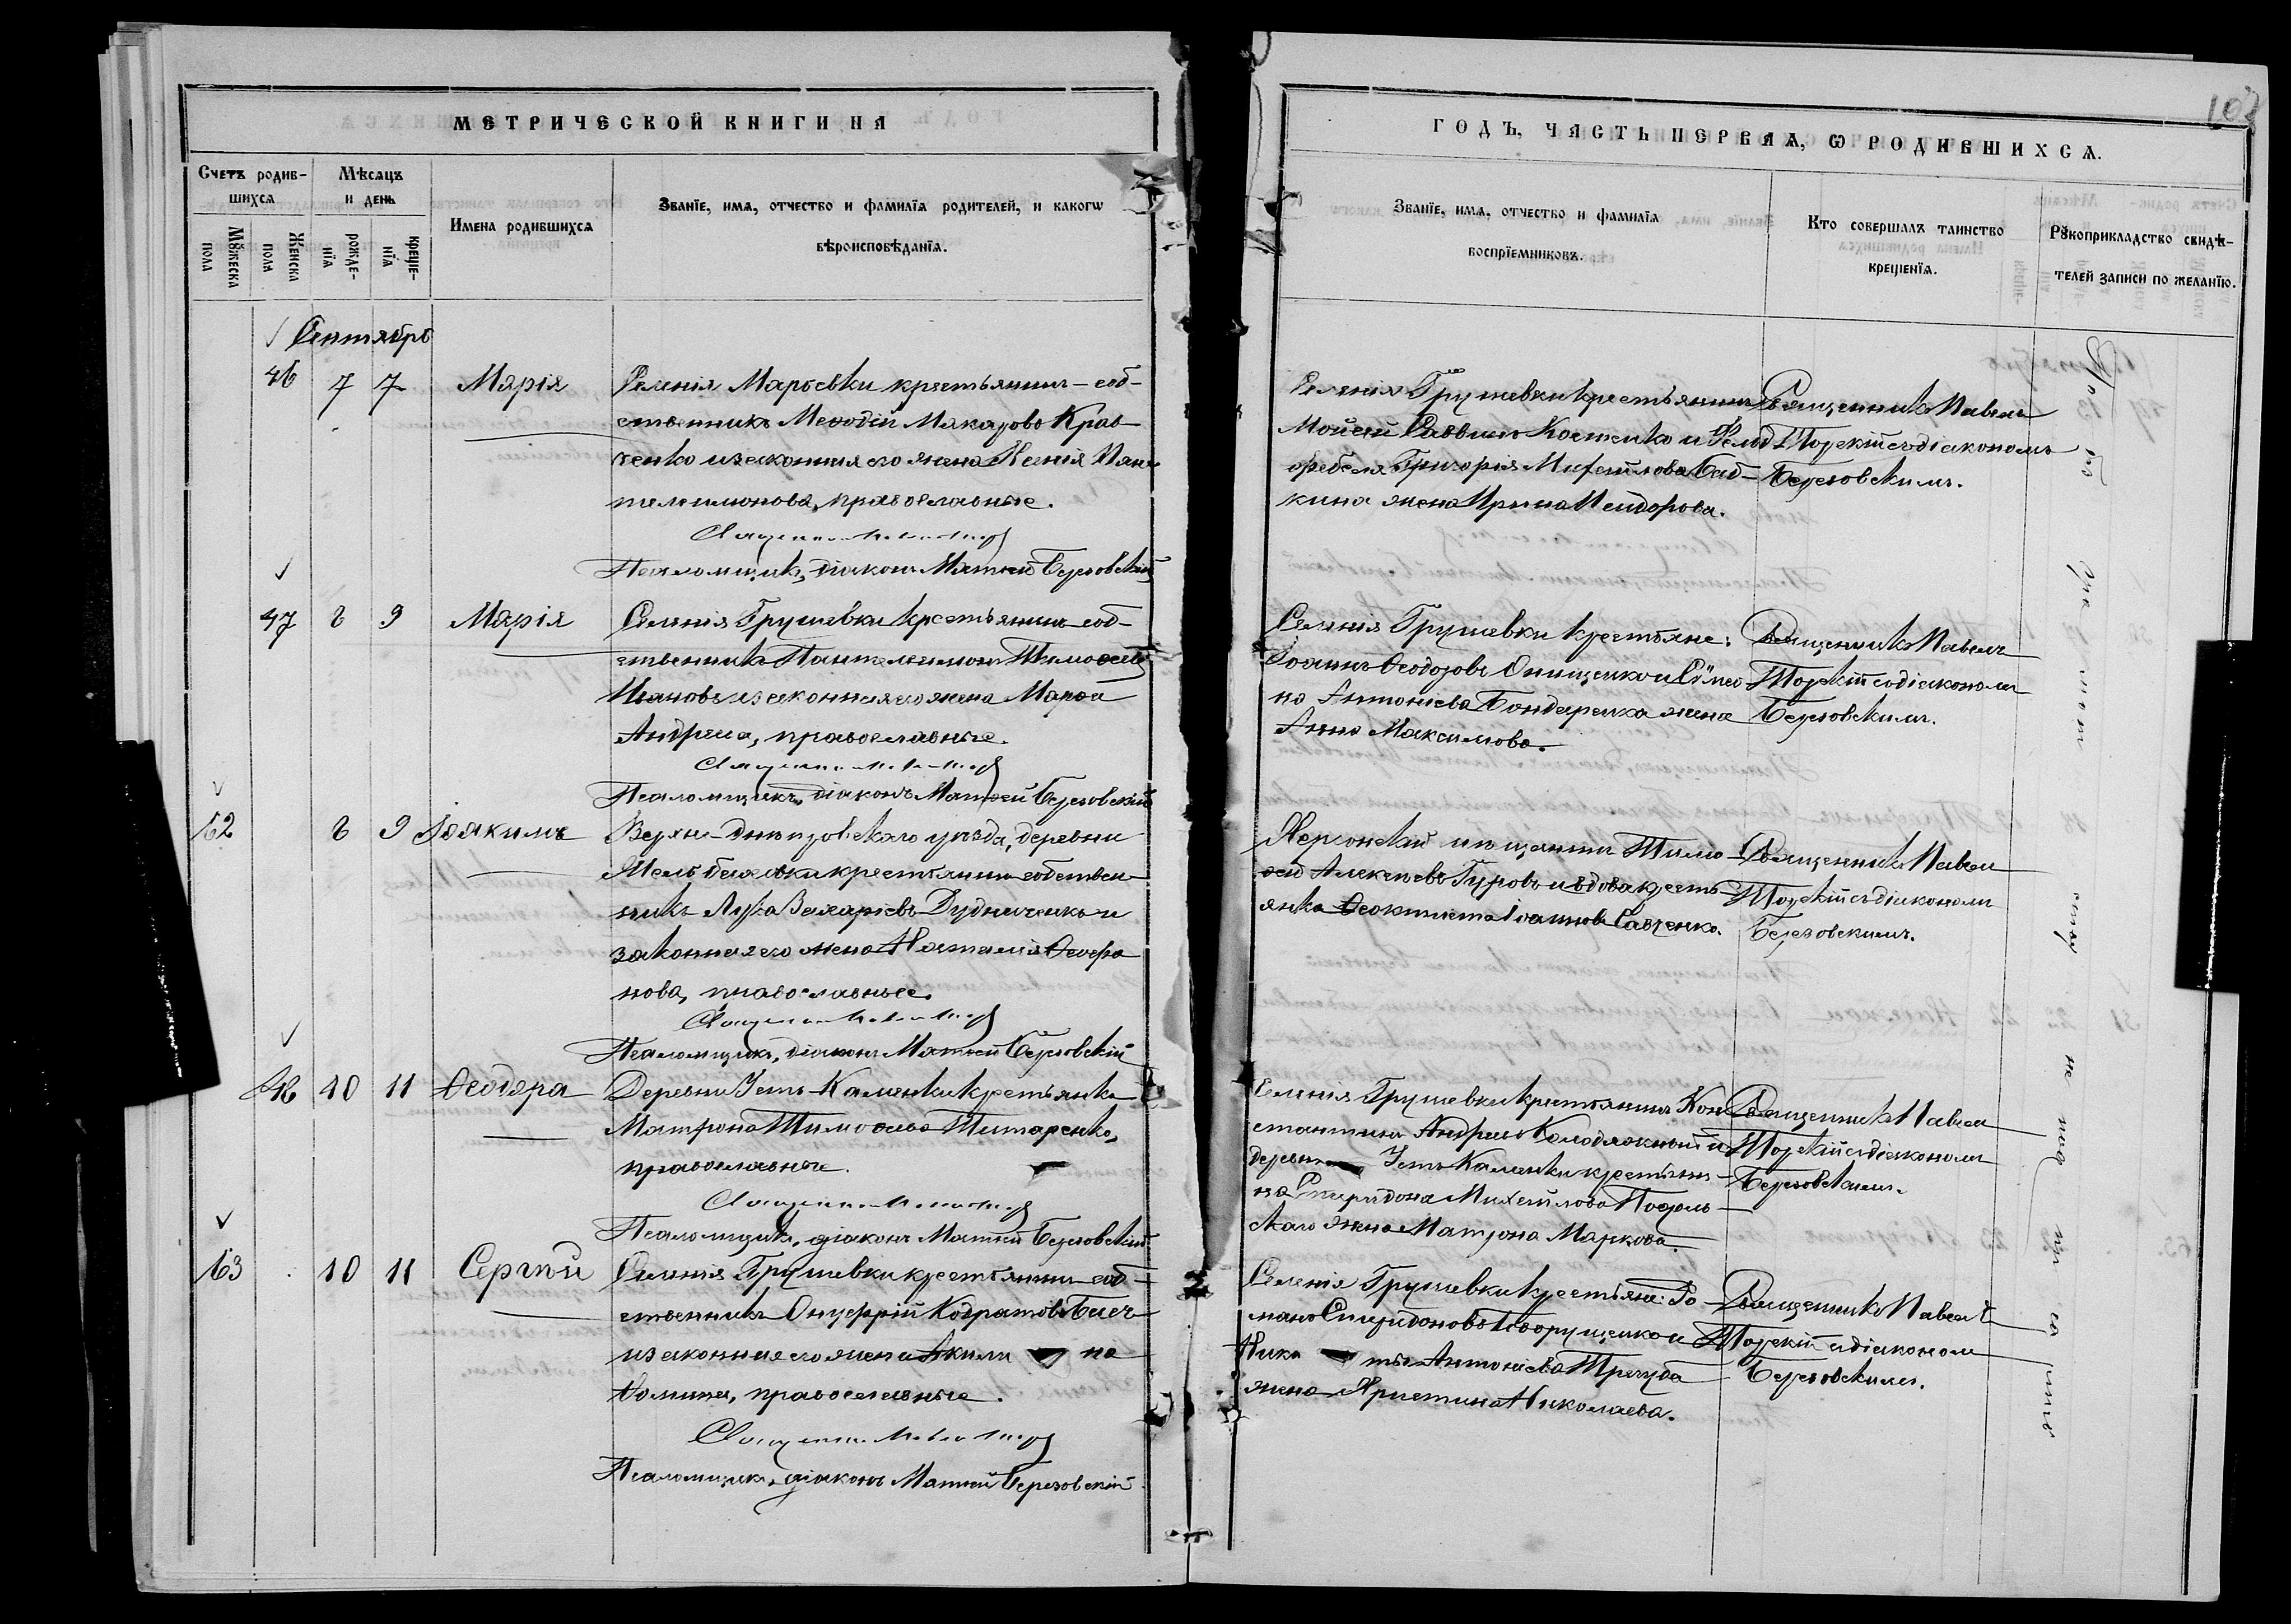 МЕТРИЧЕСКОЙ КНИГИ НА
Счетъ родив-
шихся
Мѣсяцъ
и день
Имена родившихся
Званїе, имя, отчество и фамилїя родителей, и какогѡ
вѣроисповѣданїя.
Мꙋжеска
пола
Женска
пола
рожде-
нїя
креще-
нїя
Сентябрь
46 7 7 Марія
Селенія Марьевки крестьянинъ-соб-
ственникъ Меѳодій Макаровъ Крав-
ченко и законная его жена Ксенія Пан-
телеимонова, православные.
Священникъ
Псаломщикъ, діаконъ Матѳей Березовскій
47 8 9 Марія
Селенія Грушевки крестьянинъ соб-
ственникъ Пантелеимонъ Тимоѳеевъ
Ивановъ и законная его жена Марѳа
Андреева, православные.
Священникъ
Псаломщикъ, діаконъ Матѳей Березовскій
62 8 9 Іоакимъ
Верхне-Днѣпровскаго уѣзда, деревни
крестьянинъ-собствен-
никъ Лука Захаріевъ Дудниченко и
законная его жена Наталія
нова, православные.
Священникъ
Псаломщикъ, діаконъ Матѳей Березовскій
48 10 11 Ѳеодора
Деревни Усть-Каменки крестьянка
Матрона Тимоѳеева Титаренко,
православные.
Священникъ
Псаломщикъ, діаконъ Матѳей Березовскій
63 10 11 Сергѣй
Селенія Грушевки крестьянинъ-соб-
ственникъ Онуфрій Кодратовъ
и законная его жена Акили на
Ѳомина, православные.
Священникъ
Псаломщикъ, діаконъ Матѳей Березовскій
ГОДЪ, ЧАСТЬ ПЕРВАЯ, Ѡ РОДИВШИХСЯ.
Званїе, имя, отчество и фамилїя
воспрїемниковъ.
Кто совершалъ таинство
крещенїя.
Рꙋкоприкладство свидѣ-
телей записи по желанїю.
Селенія Грушевки крестьянинъ
Мойсей Саввинъ Костенко и Фельд-
фебеля Григорія Михайлова
кина жена Ирина Исидорова.
Священникъ Павелъ
Торскій съ діакономъ
Березовскимъ.
Селенія Грушевки крестьяне:
Іоаннъ Ѳеодоровъ Онищенко и Симео-
на Антоніева Бондаренка жена
Анна Максимова.
Священникъ Павелъ
Торскій съ діакономъ
Березовскимъ.
Херсонскій мѣщанинъ Тимо-
ѳей Алексѣевъ Гуровъ и вдова кресть-
янка Ѳеоктиста Іоаннова Савченко.
Священникъ Павелъ
Торскій съ діакономъ
Березовскимъ.
Селенія Грушевки крестьянинъ Кон-
стантинъ Андреевъ Колодяжный и
деревни Усть Каменки крестьяни-
на Спиридона Михайлова
скаго жена Матрона Маркова.
Священникъ Павелъ
Торскій съ діакономъ
Березовскимъ.
Селенія Грушевки крестьяне: Ро-
манъ Спиридоновъ и
Ники ты Антоніева
жена Христина Николаева.
Священникъ Павелъ
Торскій съ діакономъ
Березовскимъ.